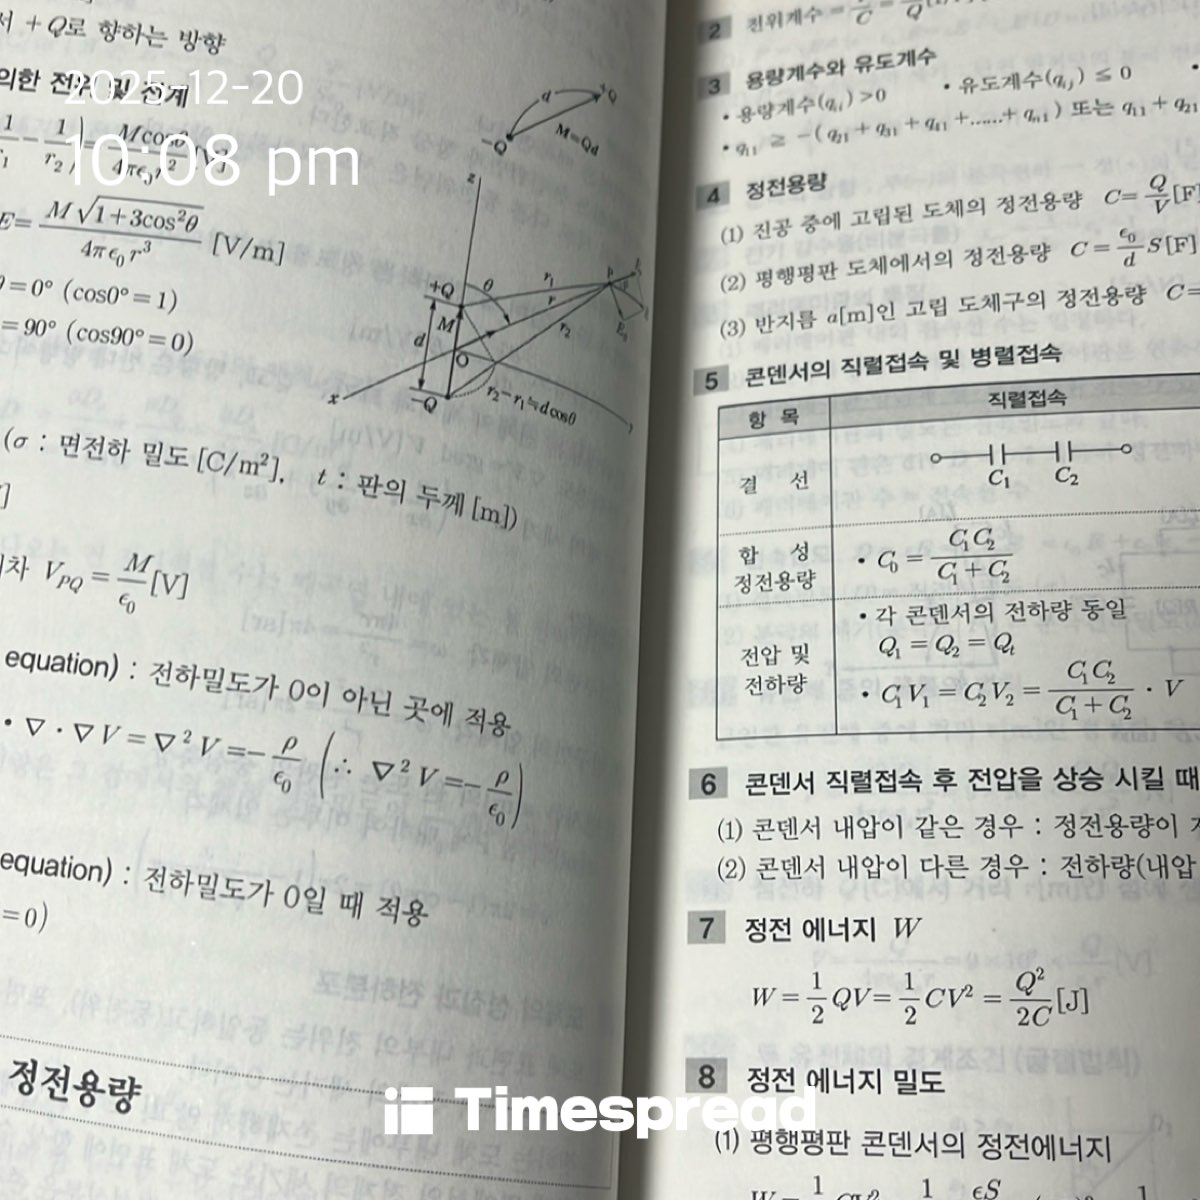 2025-12-20
10:08 pm
+Q로 향하는 방향
의한 전위 및 전계
E= M√1+3cos²θ / 4πε₀r³ [V/m]
θ=0° (cos0°=1)
=90° (cos90°=0)
d
+Q
-Q
M=Qd
z
+Q
θ
r₁
r
P
r₂
M
d
O
-Q
x
r₂-r₁≒dcosθ
(σ : 면전하 밀도 [C/m²], t : 판의 두께 [m])
V_PQ = M/ε₀ [V]
equation) : 전하밀도가 0이 아닌 곳에 적용
• ∇·∇V=∇²V=-ρ/ε₀ (∴ ∇²V=-ρ/ε₀)
equation) : 전하밀도가 0일 때 적용
=0)
정전용량
2 전위계수
3 용량계수와 유도계수
• 용량계수(q_ii) >0 • 유도계수(q_ij) ≤ 0
• q₁₁ ≥ -(q₂₁+q₃₁+q₄₁+……+q_n1) 또는 q₁₁+q₂₁
4 정전용량
(1) 진공 중에 고립된 도체의 정전용량 C=Q/V[F]
(2) 평행평판 도체에서의 정전용량 C=ε₀/d S[F]
(3) 반지름 a[m]인 고립 도체구의 정전용량 C=
5 콘덴서의 직렬접속 및 병렬접속
항 목 직렬접속
결 선 C₁ C₂
합 성 정전용량 • C₀= C₁C₂/C₁+C₂
전압 및 전하량 • 각 콘덴서의 전하량 동일
Q₁=Q₂=Q_t
• C₁V₁=C₂V₂= C₁C₂/C₁+C₂ · V
6 콘덴서 직렬접속 후 전압을 상승 시킬 때
(1) 콘덴서 내압이 같은 경우 : 정전용량이
(2) 콘덴서 내압이 다른 경우 : 전하량(내압
7 정전 에너지 W
W=1/2 QV=1/2 CV²=Q²/2C [J]
8 정전 에너지 밀도
Timespread
(1) 평행평판 콘덴서의 정전에너지